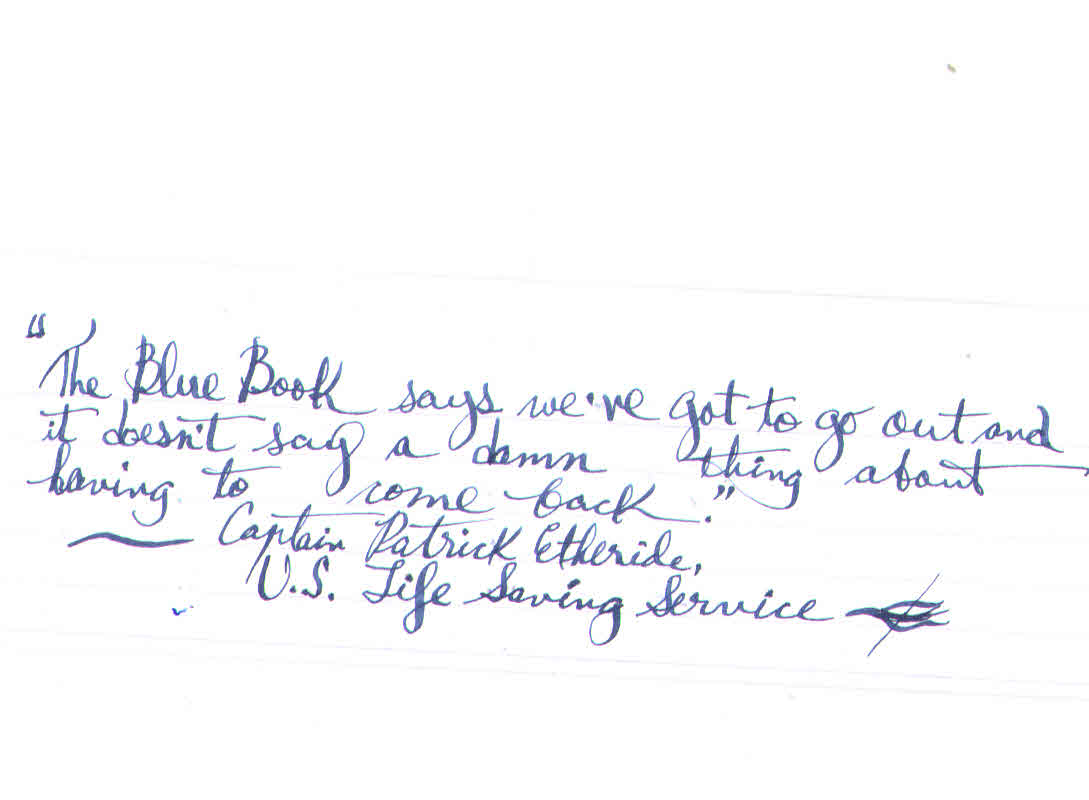 "The Blue Book says we've got to go out and
it doesn't say a damn thing about
having to come back."
— Captain Patrick Etheride,
U.S. Life Saving Service